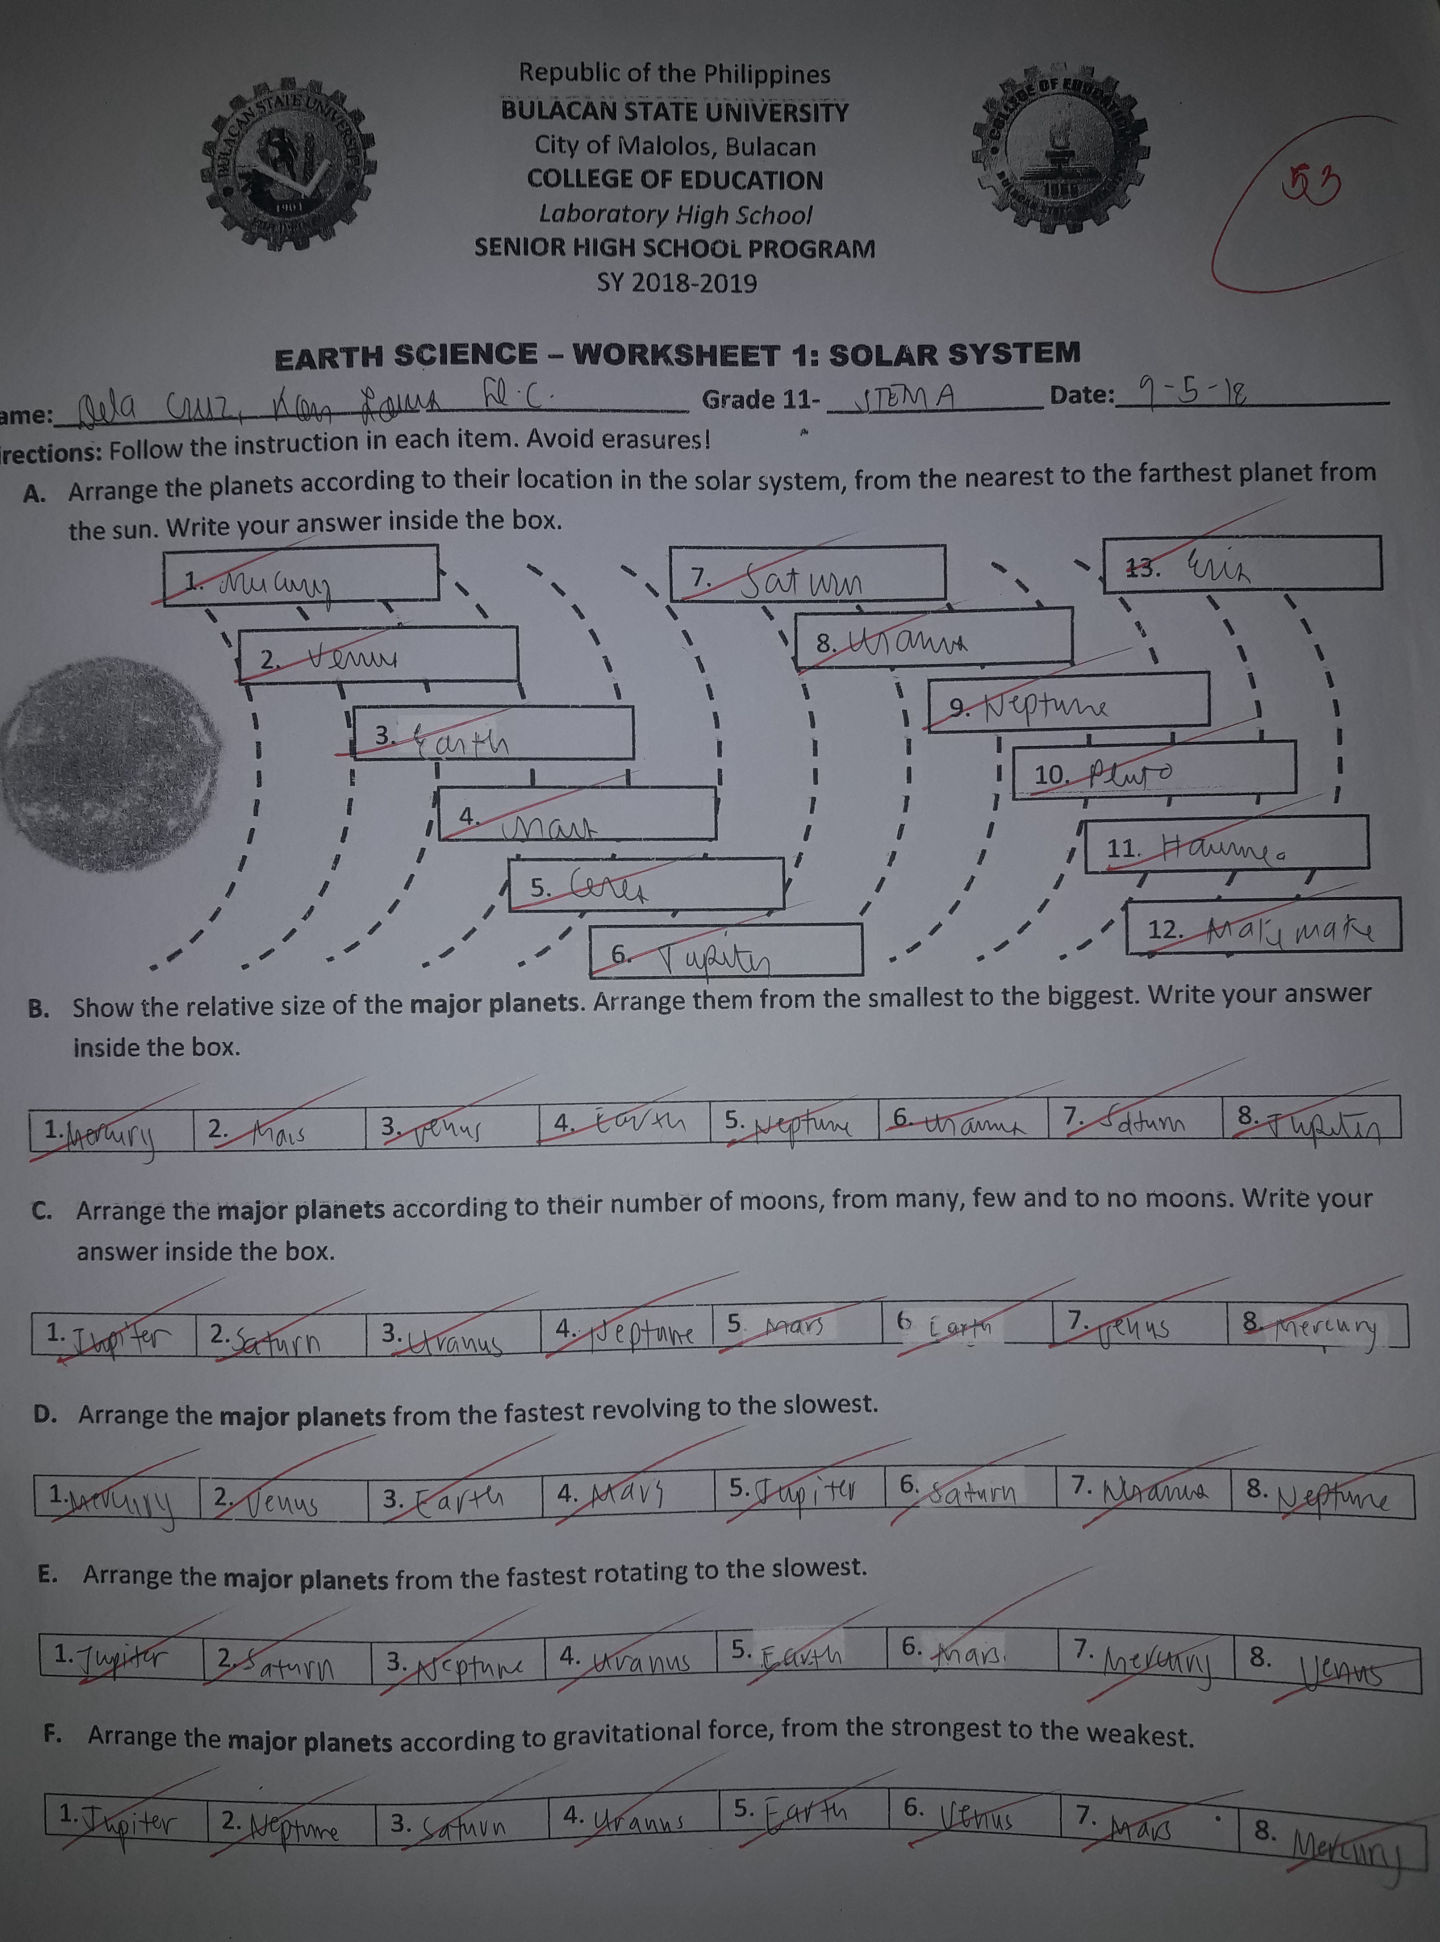 Republic of the Philippines
BULACAN STATE UNIVERSITY
City of Malolos, Bulacan
COLLEGE OF EDUCATION
Laboratory High School
SENIOR HIGH SCHOOL PROGRAM
SY 2018-2019
BULACAN STATE UNIVERSITY
1904
COLLEGE OF EDUCATION
53
EARTH SCIENCE – WORKSHEET 1: SOLAR SYSTEM
ame: Dela Cruz, Grade 11- STEM A Date: 9-5-18
irections: Follow the instruction in each item. Avoid erasures!
A. Arrange the planets according to their location in the solar system, from the nearest to the farthest planet from
the sun. Write your answer inside the box.
1. Mercury
2. Venus
3. Earth
4. Mars
5. Ceres
6. Jupiter
7. Saturn
8. Uranus
9. Neptune
10. Pluto
11. Haumea
12. Makemake
13. Eris
B. Show the relative size of the major planets. Arrange them from the smallest to the biggest. Write your answer
inside the box.
1. Mercury 2. Mars 3. Venus 4. Earth 5. Neptune 6. Uranus 7. Saturn 8. Jupiter
C. Arrange the major planets according to their number of moons, from many, few and to no moons. Write your
answer inside the box.
1. Jupiter 2. Saturn 3. Uranus 4. Neptune 5. Mars 6 Earth 7. Venus 8. Mercury
D. Arrange the major planets from the fastest revolving to the slowest.
1. Mercury 2. Venus 3. Earth 4. Mars 5. Jupiter 6. Saturn 7. Uranus 8. Neptune
E. Arrange the major planets from the fastest rotating to the slowest.
1. Jupiter 2. Saturn 3. Neptune 4. Uranus 5. Earth 6. Mars. 7. Mercury 8. Venus
F. Arrange the major planets according to gravitational force, from the strongest to the weakest.
1. Jupiter 2. Neptune 3. Saturn 4. Uranus 5. Earth 6. Venus 7. Mars 8. Mercury